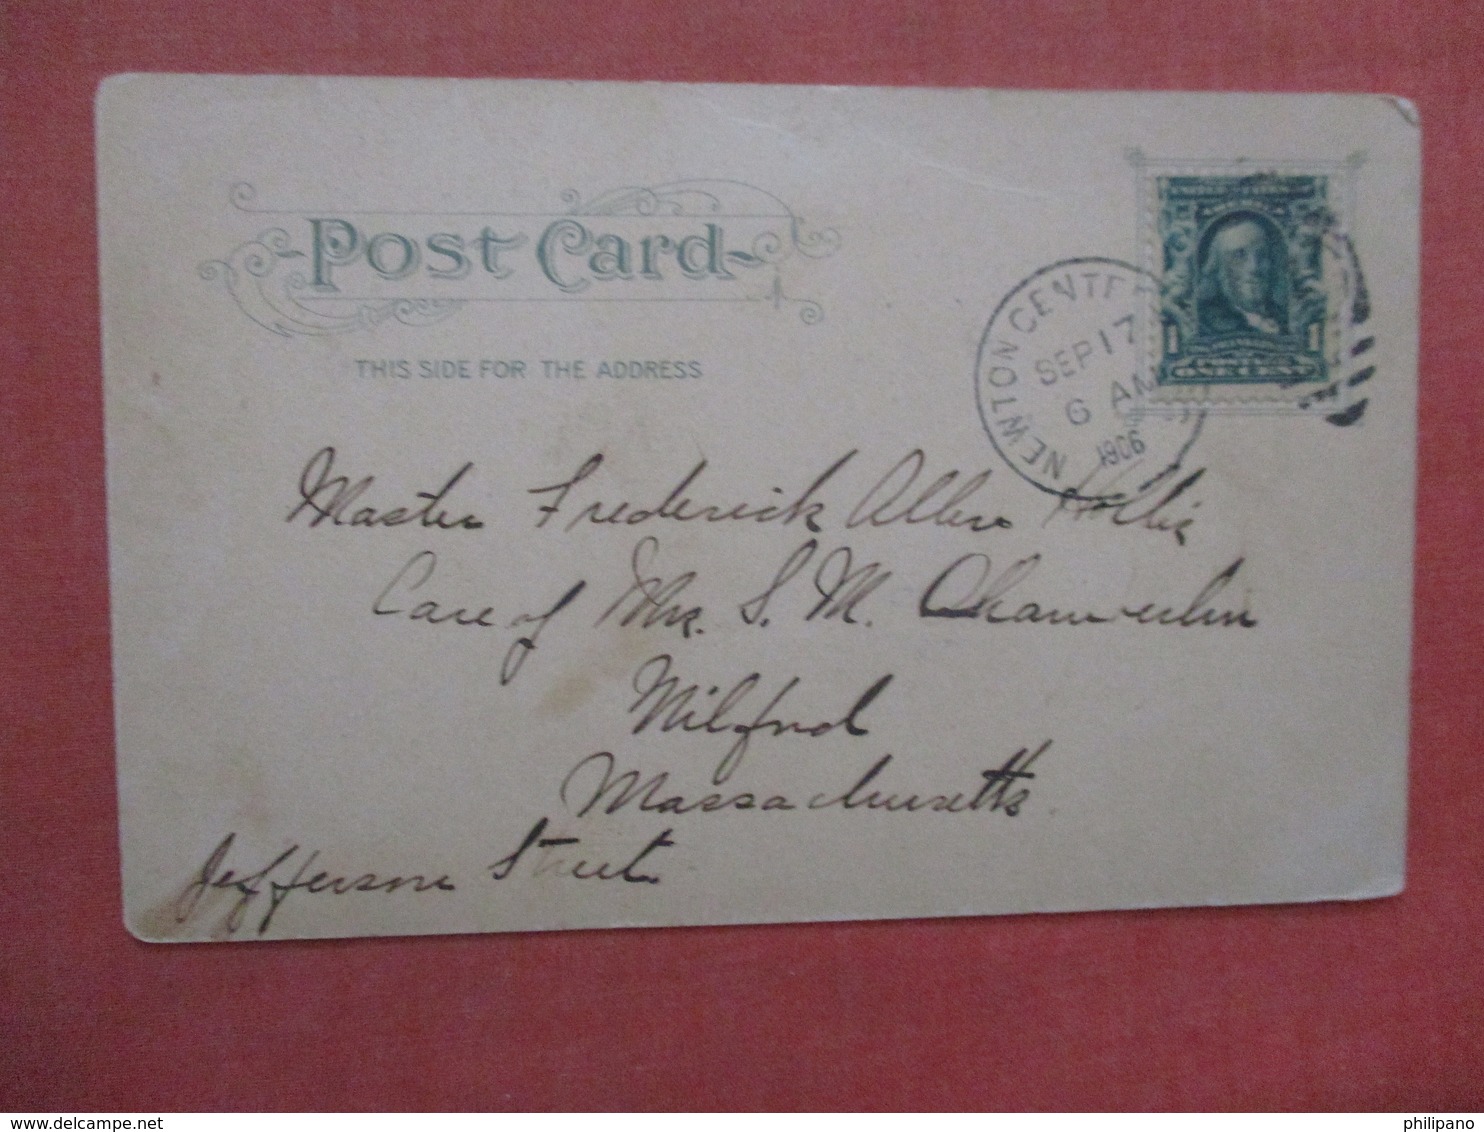 Post Card
THIS SIDE FOR THE ADDRESS
NEWTON CENTE
SEP 17
6 AM
1906
1 1
Master Frederick Allen Hollis
Care of Mrs. S. M. Chamberlin
Milford
Massachusetts.
Jefferson Street.
delcampe.net
philipano